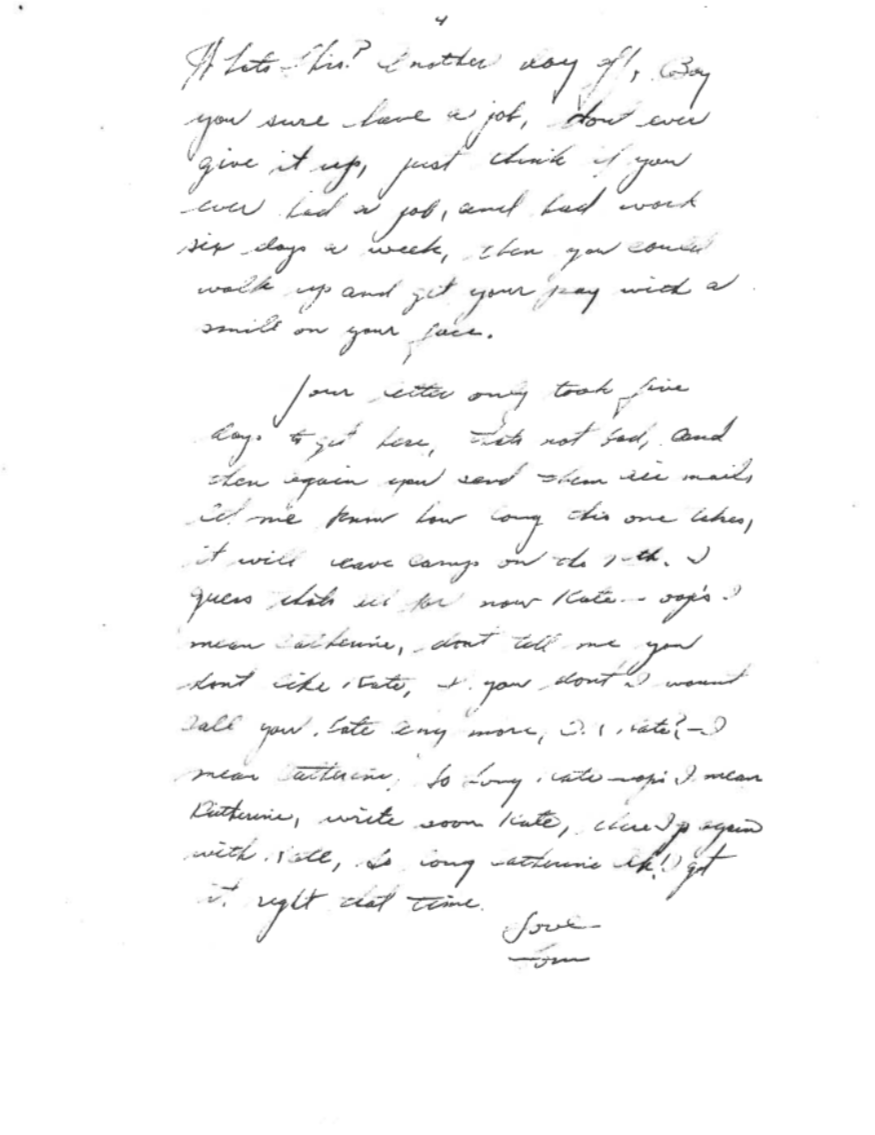 4
Whats this? Another day off, Boy
you sure have a job, dont ever
give it up, just think if you
ever had a job, and had work
six days a week, then you could
walk up and get your pay with a
smile on your face.
Your letter only took five
days to get here, thats not bad, and
then again you send them air mail,
let me know how long this one takes,
it will leave camp on the th. I
guess thats all for now Kate - oop's I
mean Catherine, dont tell me you
dont like Kate, if you dont I wount
call you Kate any more, Kate? - I
mean Catherine, So Long Kate - oops I mean
Katherine, write soon Kate, there I go again
with Kate, So long Catherine ah! I got
it right that time.
Love
Tom